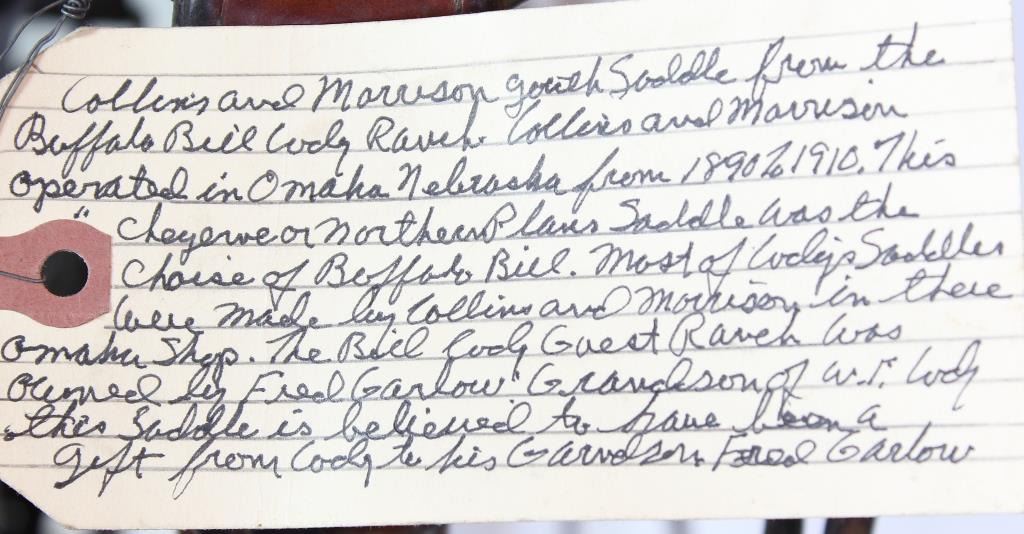 Collins and Morrison youth Saddle from the
Buffalo Bill Cody Ranch. Collins and Morrison
operated in Omaha Nebraska from 1890 to 1910. This
" Cheyenne or Northern Plains Saddle was the
Choise of Buffalo Bill. Most of Codys Saddles
were made by Collins and Morrison in there
Omaha Shop. The Bill Cody Guest Ranch was
owned by Fred Garlow" Grandson of W.F. Cody
this Saddle is believed to have been a
gift from Cody to his Garndson Fred Garlow